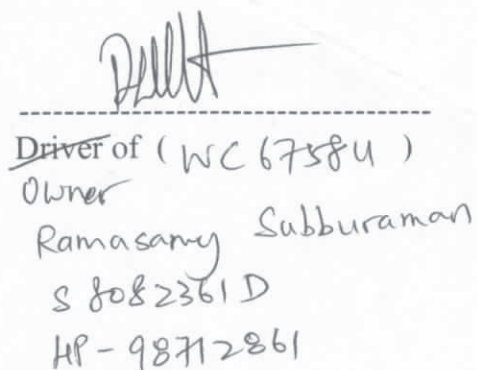 Driver of ( WC 6758U )
Owner
Ramasamy Subburaman
S 8082361D
HP - 98712861